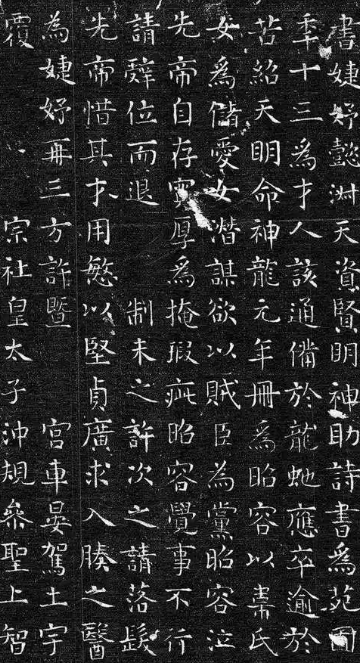 書婕妤懿淑天資賢明神助詩書為苑囿
秊十三為才人該通備於龍虵應卒逾於
苦紹天明命神龍元年冊為昭容以韋氏
女為儲愛女潛謀欲以賊臣為黨昭容泣
先帝自存寬厚為掩瑕疵昭容覺事不行
請辭位而退 制未之許次之請落髮
先帝惜其才用慜以堅貞廣求入腠之醫
為婕妤再三方許暨 宮車晏駕土宇
覆 宗社皇太子沖規參聖上智